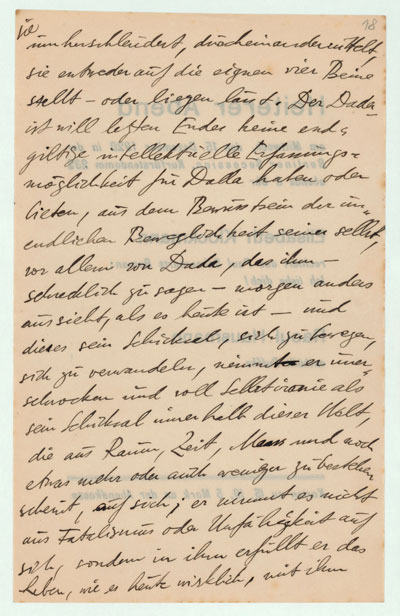 18
sie
umherschleudert, durcheinanderrüttelt,
sie entweder auf die eignen vier Beine
stellt – oder liegen lässt. Der Dada-
ist will letzten Endes keine end-
giltige intellektuelle Erfassungs-
möglichkeit für Dada haben oder
bieten, aus dem Bewusstsein der un-
endlichen Beweglichkeit seiner selbst,
vor allem von Dada, das ihm –
schrecklich zu sagen – morgen anders
aussieht, als es heute ist – und
dieses sein Schicksal, sich zu bewegen,
sich zu verwandeln, nimmt er uner-
schrocken und voll Selbstironie als
sein Schicksal innerhalb dieser Welt,
die aus Raum, Zeit, und noch
etwas mehr oder auch weniger zu bestehen
scheint, auf sich; er nimmt es nicht
aus Fatalismus oder Unfähigkeit auf
sich, sondern in ihm erfüllt er das
Leben, wie es heute wirklich, mit ihm
Heiterer Abend